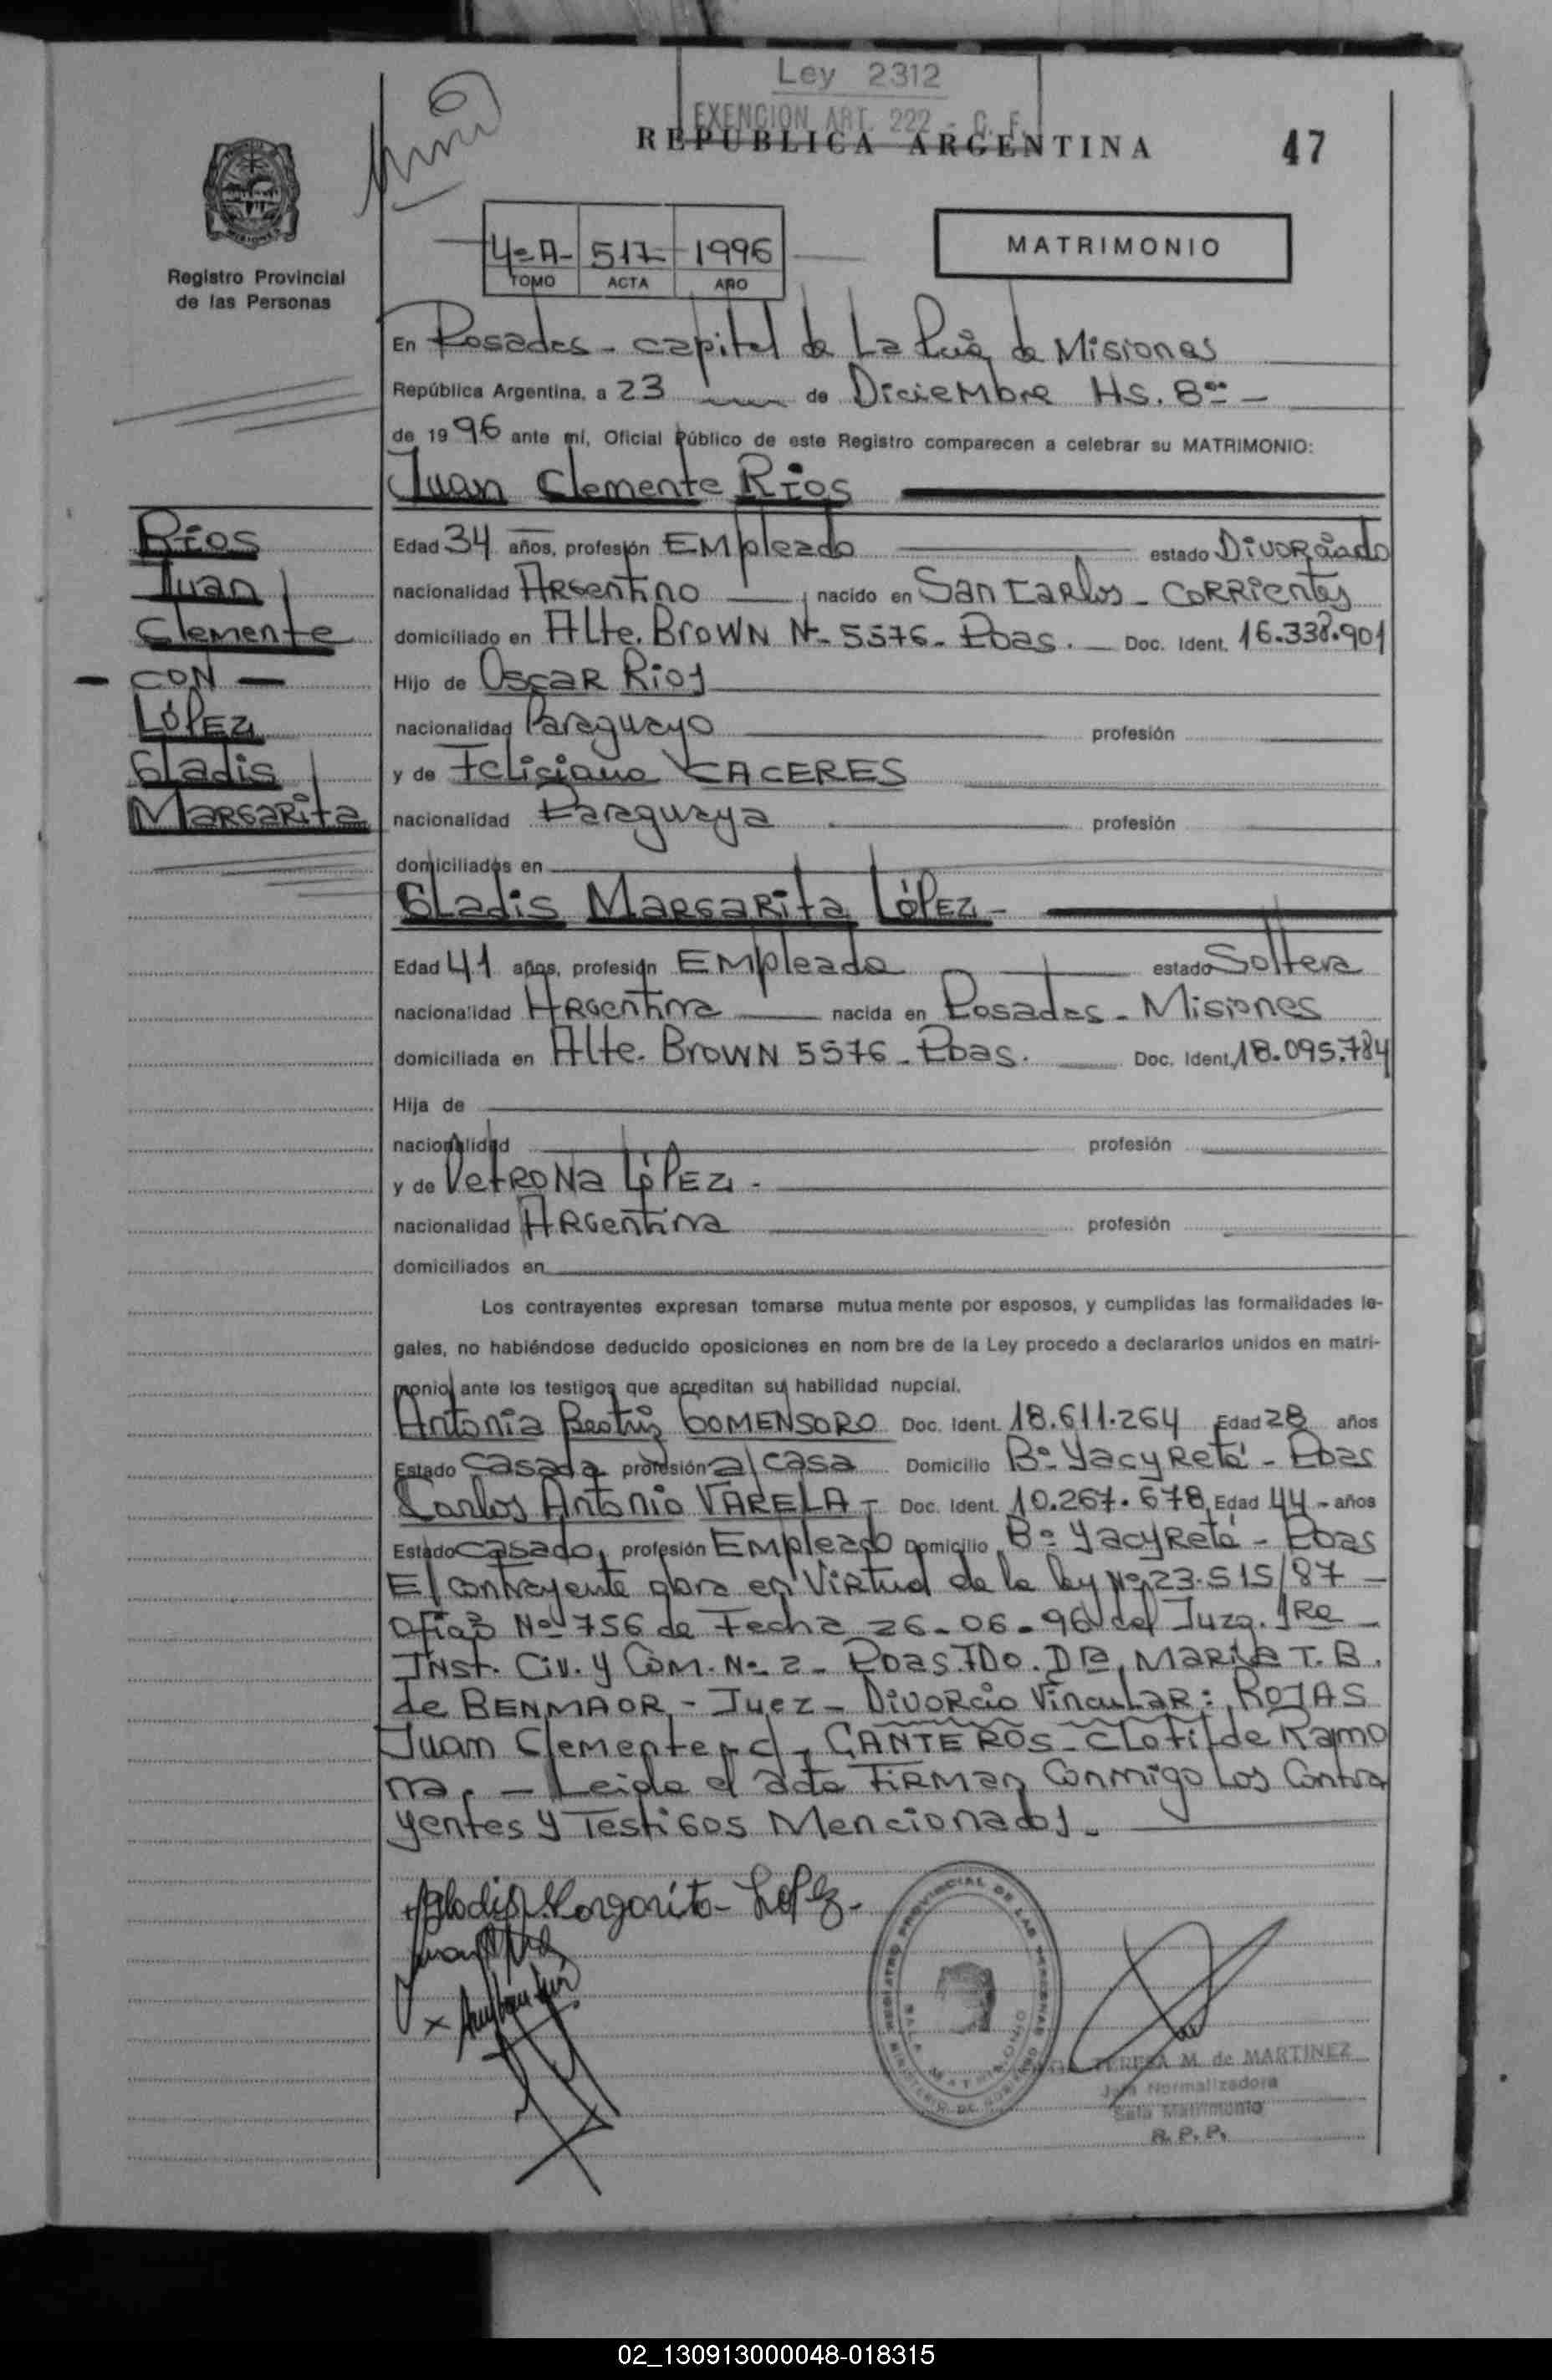 Ley 2312
EXENCION ART. 222 - C. F.
REPUBLICA ARGENTINA
47
4º A- 517 1996
TOMO ACTA AÑO
MATRIMONIO
Registro Provincial
de las Personas
En Posadas - capital de La Pcia, de Misiones
República Argentina, a 23 de Diciembre Hs. 8
de 1996 ante mí, Oficial Público de este Registro comparecen a celebrar su MATRIMONIO:
Juan Clemente Ríos
Ríos
Juan
Clemente
- CON -
López
Gladis
Margarita
Edad 34 años, profesión Empleado estado Divorciado
nacionalidad Argentino nacido en San Carlos - Corrientes
domiciliado en Alte. Brown Nº 5576 - Pdas. Doc. Ident. 16.338.901
Hijo de Oscar Rios
nacionalidad Paraguayo profesión
y de Feliciana CACERES
nacionalidad Paraguaya profesión
domiciliados en
Gladis Margarita López -
Edad 41 años, profesión Empleada estado Soltera
nacionalidad Argentina nacida en Posadas - Misiones
domiciliada en Alte. Brown 5576 - Pdas. Doc. Ident. 18.095.784
Hija de
nacionalidad profesión
y de Petrona López -
nacionalidad Argentina profesión
domiciliados en
Los contrayentes expresan tomarse mutua mente por esposos, y cumplidas las formalidades le-
gales, no habiéndose deducido oposiciones en nom bre de la Ley procedo a declararlos unidos en matri-
monio ante los testigos que acreditan su habilidad nupcial.
Antonia Beatriz GOMENSORO Doc. Ident. 18.611.264 Edad 28 años
Estado Casada profesión a/casa Domicilio Bº Yacyretá - Pdas
Carlos Antonio VARELA - Doc. Ident. 10.267.678 Edad 44 - años
Estado casado, profesión Empleado Domicilio Bº Yacyretá - Pdas
El contrayente obra en Virtud de la ley Nº 23.515/87 -
Oficio Nº 756 de Fecha 26-06-96 del Juzg. 1Ra -
Inst. Civ. y Com. Nº 2 - Pdas. FDO. DRa, Maria T. B.
de BENMAOR - Juez - Divorcio Vincular: ROJAS
Juan Clemente c/ CANTEROS - Clotilde Ramo
na. - Leida el acta FIRMAN Conmigo Los Contra
yentes y Testigos Mencionados -
Gladis Margarita Lopez -
REGISTRO PROVINCIAL DE LAS PERSONAS
SALA MATRIMONIO
MINISTERIO DE GOBIERNO
TERESA M. de MARTINEZ
Jefa Normalizadora
Sala Matrimonio
R. P. P.
02_130913000048-018315